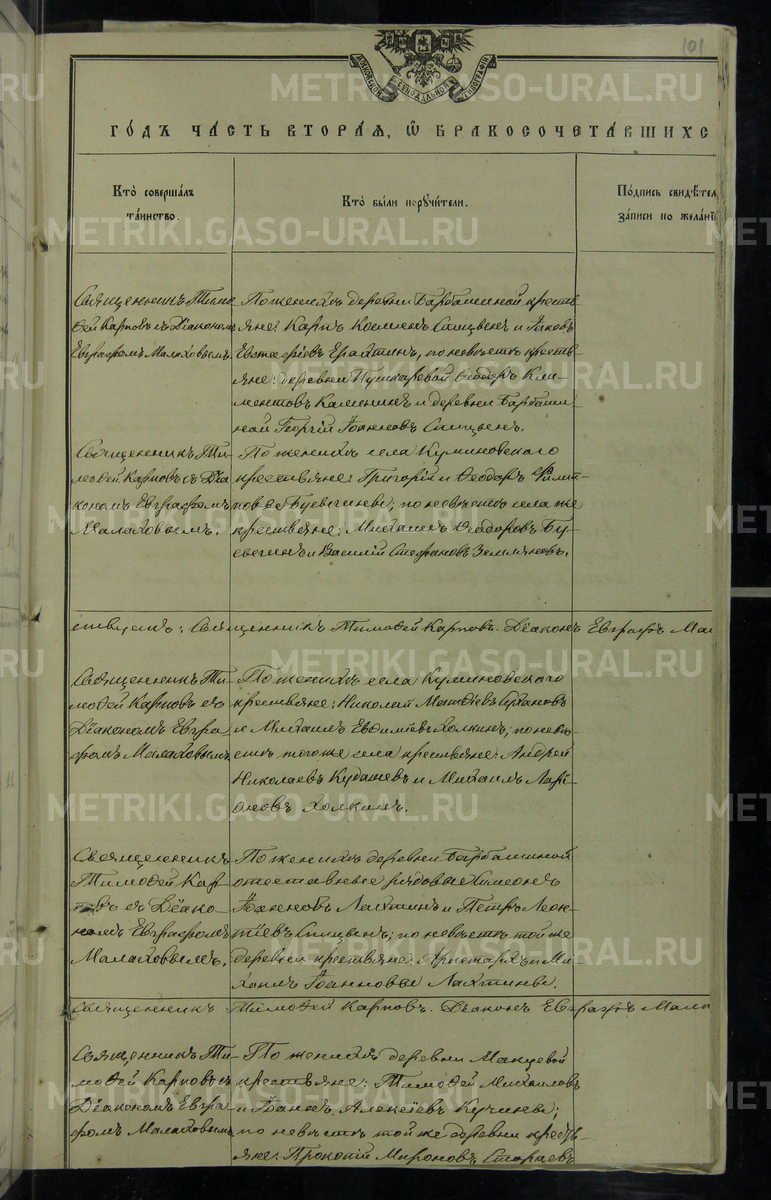 101
МОСКОВСКОЙ СѴНОДАЛЬНОЙ ТИПОГРАФІИ
ГОДЪ ЧАСТЬ ВТОРАЯ, Ѿ БРАКОСОЧЕТАВШИХС
Кто совершалъ
таинство.
Кто были поручители.
Подпись свидѣтел
записи по желані
Священникъ Тимо
ѳей Карповъ съ Діакономъ
Евграфомъ Малаховымъ.
По женихѣ деревни Барбашиной кресть
яне: Карпъ Косминъ Спицынъ и Іаковъ
Евстафіевъ, по невѣстѣ кресть
яне: деревни Пушкаревой Ѳеодоръ Кли-
ментовъ Калининъ и деревни Барбаши
ной Георгій Іоанновъ Спицынъ.
Священникъ Ти-
моѳей Карповъ съ Діа
кономъ Евграфомъ
Малаховымъ.
По женихѣ села Куминовскаго
крестьяне: Григорій и Ѳеодоръ Филип-
повы, по невѣстѣ села же
крестьяне: Михаилъ Ѳеодоровъ
и Василій Стефановъ Земляновъ.
ствуетъ: Священникъ Тимоѳей Карповъ. Діаконъ Евграфъ Мал
Священникъ Ти-
моѳей Карповъ съ
Діакономъ Евгра-
фомъ Малаховымъ
По женихѣ села Куминовскаго
крестьяне: Николай Матѳіевъ
и Михаилъ Евѳиміевъ Холкинъ; по невѣ
стѣ того же села крестьяне: Андрей
Николаевъ Кудашевъ и Михаилъ Лари
оновъ Холкинъ.
Священникъ
Тимоѳей Кар-
повъ съ Діако-
номъ Евграфомъ
Малаховымъ.
По женихѣ деревни Барбашиной
отставные рядовые Симеонъ
Іоанновъ Лахтинъ и Петръ Леон-
тіевъ Спицынъ; по невѣстѣ той же
деревни крестьяне: Аристархъ и Ми
хаилъ Іоанновы Лахтины.
Священникъ Тимоѳей Карповъ. Діаконъ Евграфъ Мала
Священникъ Ти-
моѳей Карповъ съ
Діакономъ Евгра
фомъ Малаховымъ
По женихѣ деревни
крестьяне: Тимоѳей Михайловъ
и Іоаннъ Алексіевъ Кучины;
по невѣстѣ той же деревни кресть-
яне: Прокопій Мироновъ Старцевъ
METRIKI.GASO-URAL.RU